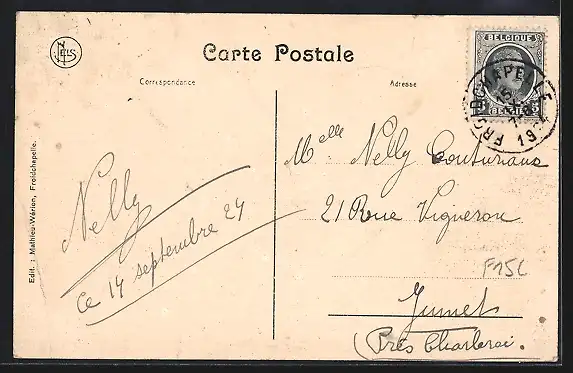 NELS
Carte Postale
Correspondance
Adresse
BELGIQUE
BELGIË
FROIDCHAPELLE
Edit. : Mathieu-Wérion, Froidchapelle.
Nelly
ce 14 septembre 24
Melle Nelly Couturiaux
21 Rue Vigneron
F15L
Jumet
(Près Charleroi.